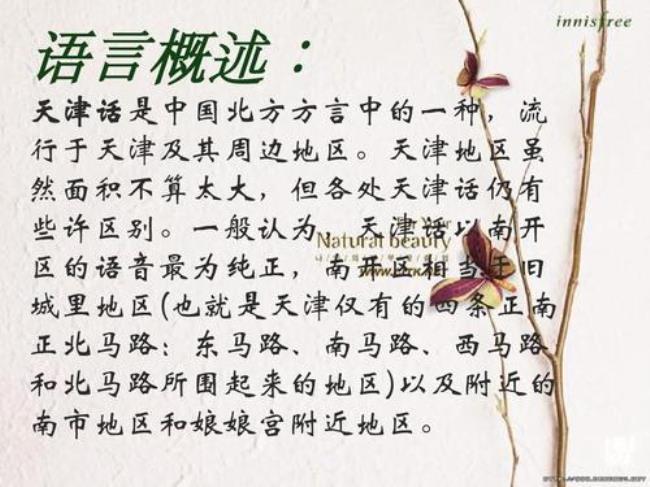 innisfree
语言概述：
天津话是中国北方方言中的一种，流
行于天津及其周边地区。天津地区虽
然面积不算太大，但各处天津话仍有
些许区别。一般认为，天津话以南开
Natural beauty
区的语音最为纯正，南开区相当于旧
城里地区(也就是天津仅有的四条正南
正北马路：东马路、南马路、西马路
和北马路所围起来的地区)以及附近的
南市地区和娘娘宫附近地区。